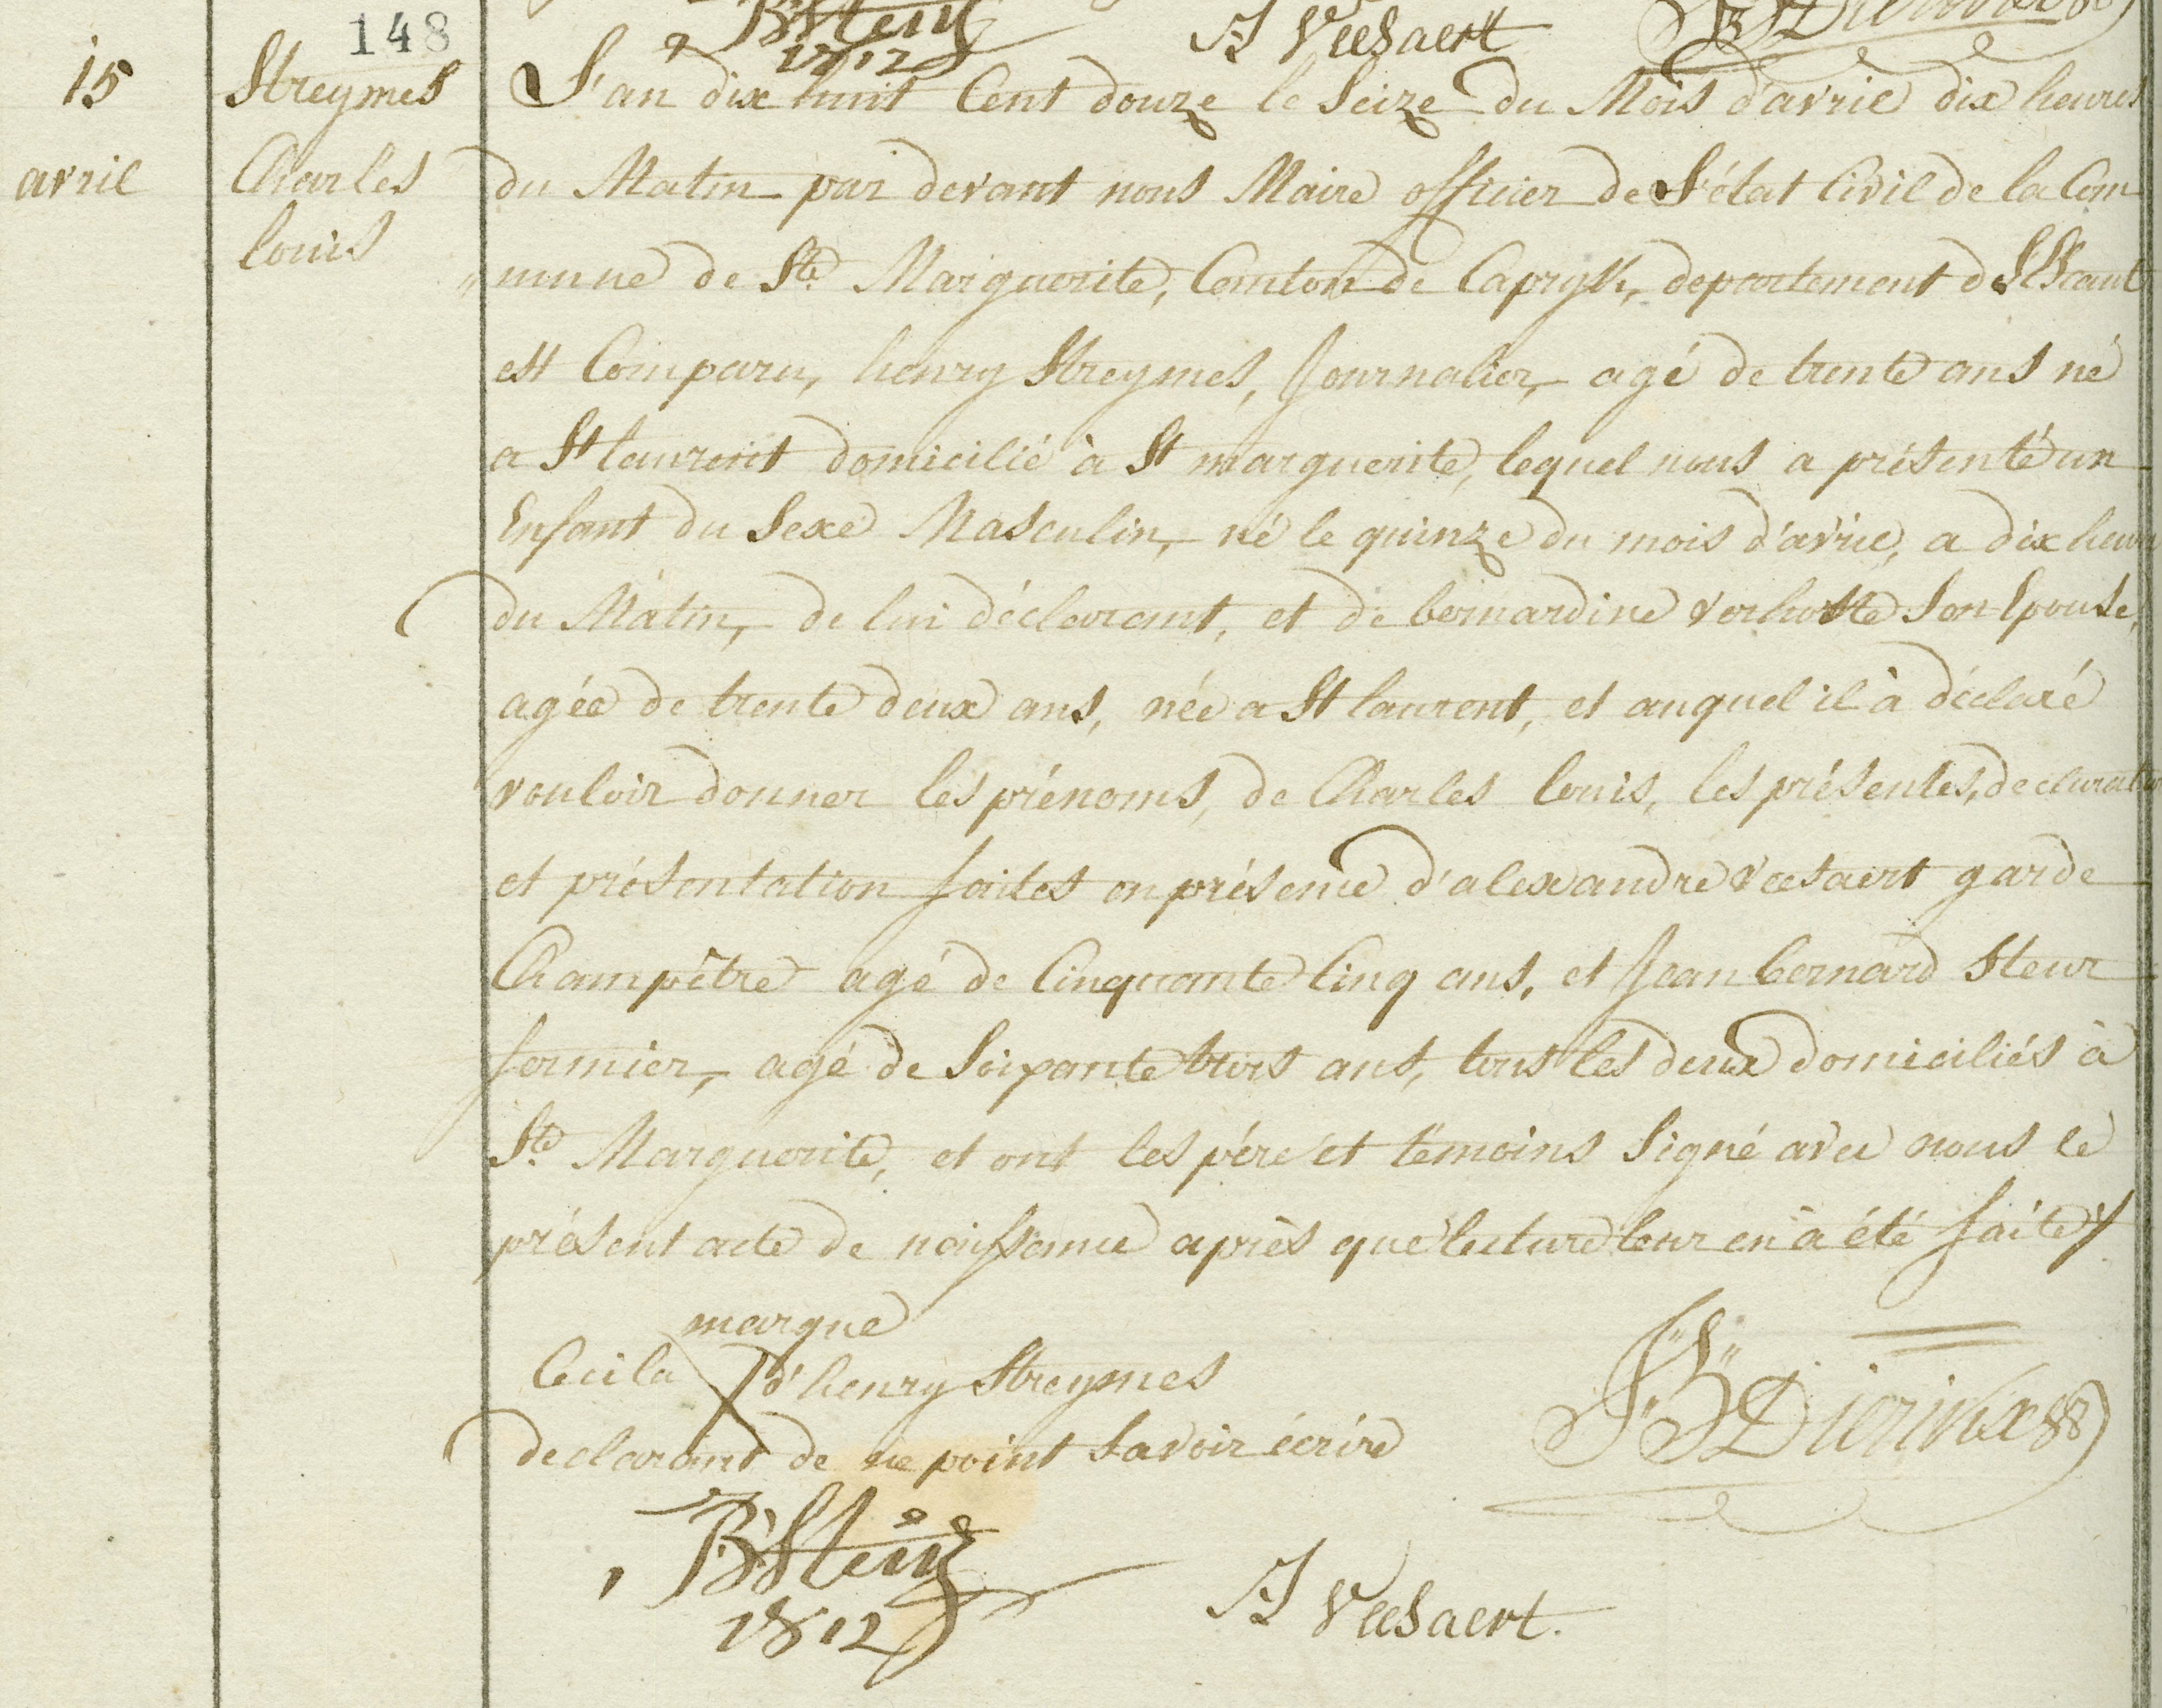 148
15
avril
Streymes
Charles
louis
BSteur
1812
A Veesaert
L'an dix huit Cent douze le Seize du Mois d'avril dix heures
du Matin par devant nous Maire officier de L'état Civil de la Com
"mune de Ste Marguerite, Canton de Capryk, departement de L'Escaut
est Comparu, henry Streymes, Journalier, agé de trente ans né
a St laurent domicilié à St marguerite, lequel nous a présenté un
Enfant du Sexe Masculin, né le quinze du mois d'avril, a dix heures
du Matin, de lui déclarant, et de bernardine verhoste Son Epouse,
agée de trente deux ans, née a St laurent, et auquel il à déclaré
vouloir donner les prénoms, de Charles louis, les présentes, declaration
et présentation faites en présence d'alexandre veesaert garde
Champêtre agé de Cinquante Cinq ans, et Jean bernard Steur
fermier, agé de Soixante trois ans, tous les deux domiciliés à
Ste Marguerite, et ont les père et témoins Signé avec nous le
présent acte de naissance après que lecture leur en à été faite
marque
Ceci la X d'henry Streymes
declarant de ne point Savoir écrire
JB Dierickx
BSteur
1812
A Veesaert.